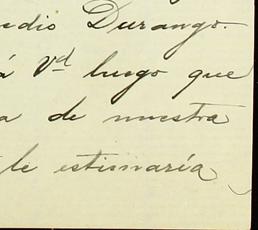 edio Durango.
á Vd luego que
a de nuestra
le estimaría